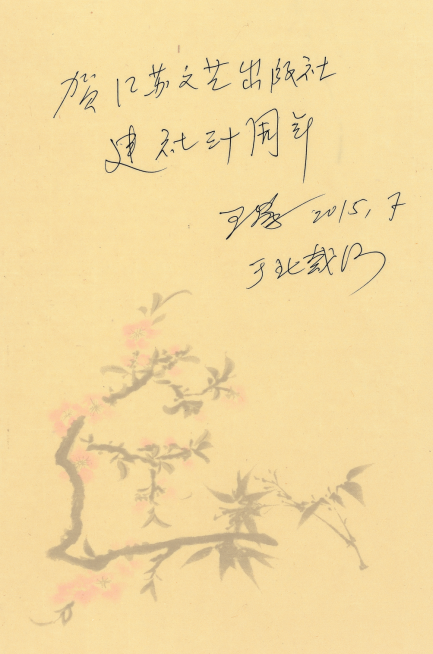 贺江苏文艺出版社
建社三十周年
王蒙 2015.7
于北戴河